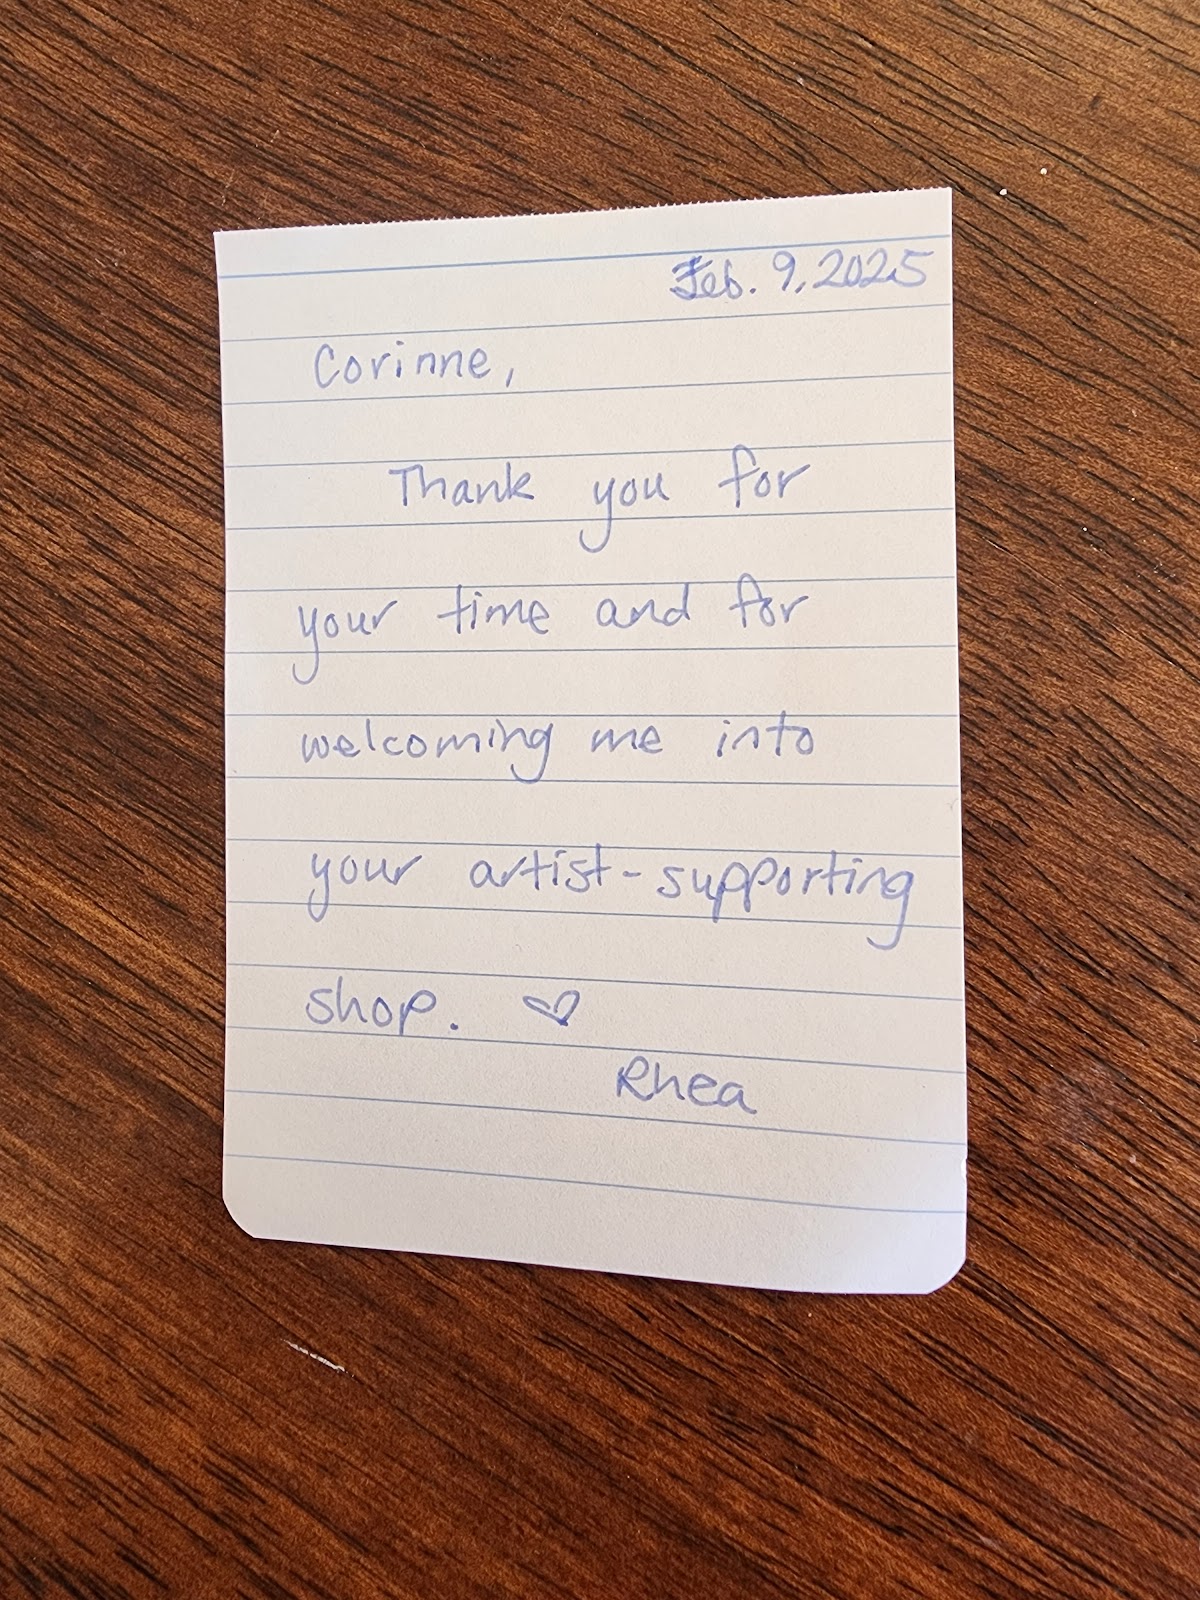 Feb. 9, 2025
Corinne,
Thank you for
your time and for
welcoming me into
your artist-supporting
shop. ♡
Rhea